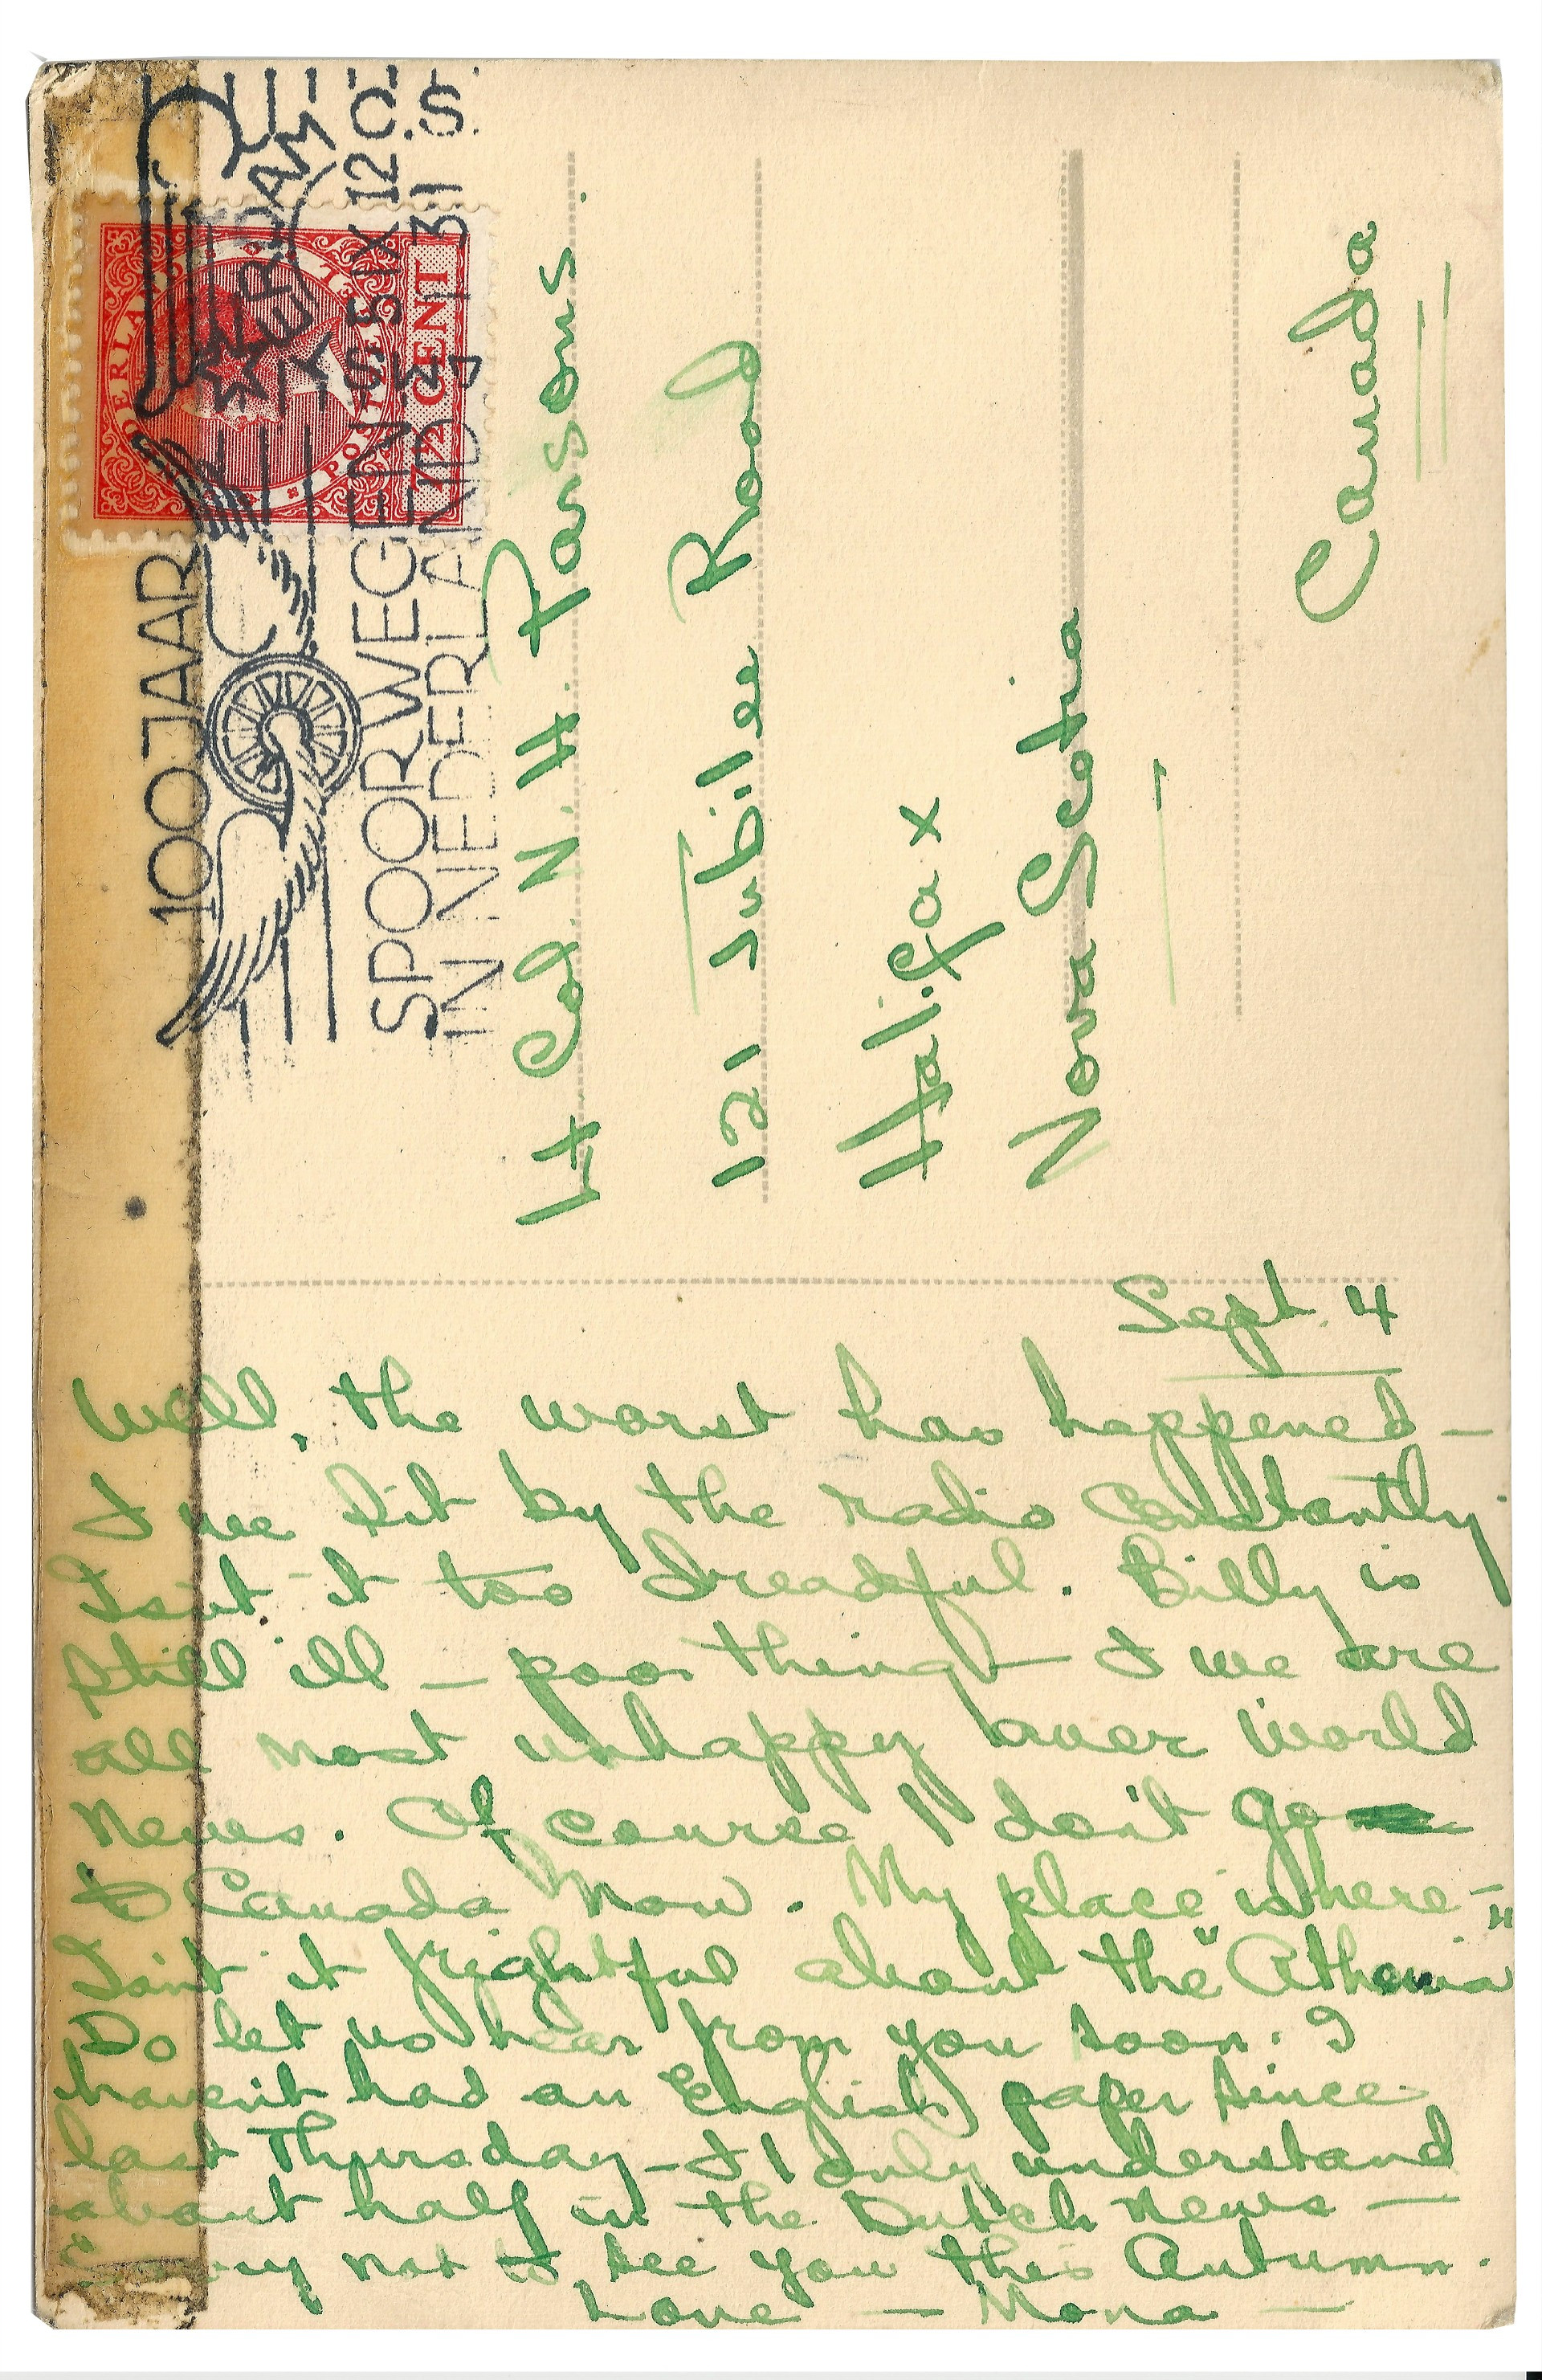 100 JAAR
SPOORWEGEN
IN NEDERLAND
5 IX 12
1931
C.S.
POSTERIJEN
7½ CENT
Lt Col. N. H. Parsons.
121 Jubilee Road
Halifax
Nova Scotia
Canada
Sept. 4
Well, the worst has happened —
& we sit by the radio constantly.
Isn't it too dreadful. Billy is
still ill — poor thing — & we are
all most unhappy over world
news. Of course I don't go
to Canada now. My place is here —
Isn't it frightful about the "Athenia"
Do let us hear from you soon. I
haven't had an English paper since
last Thursday — & I only understand
about half in the Dutch news —
not to see you this Autumn.
Love — Mona —